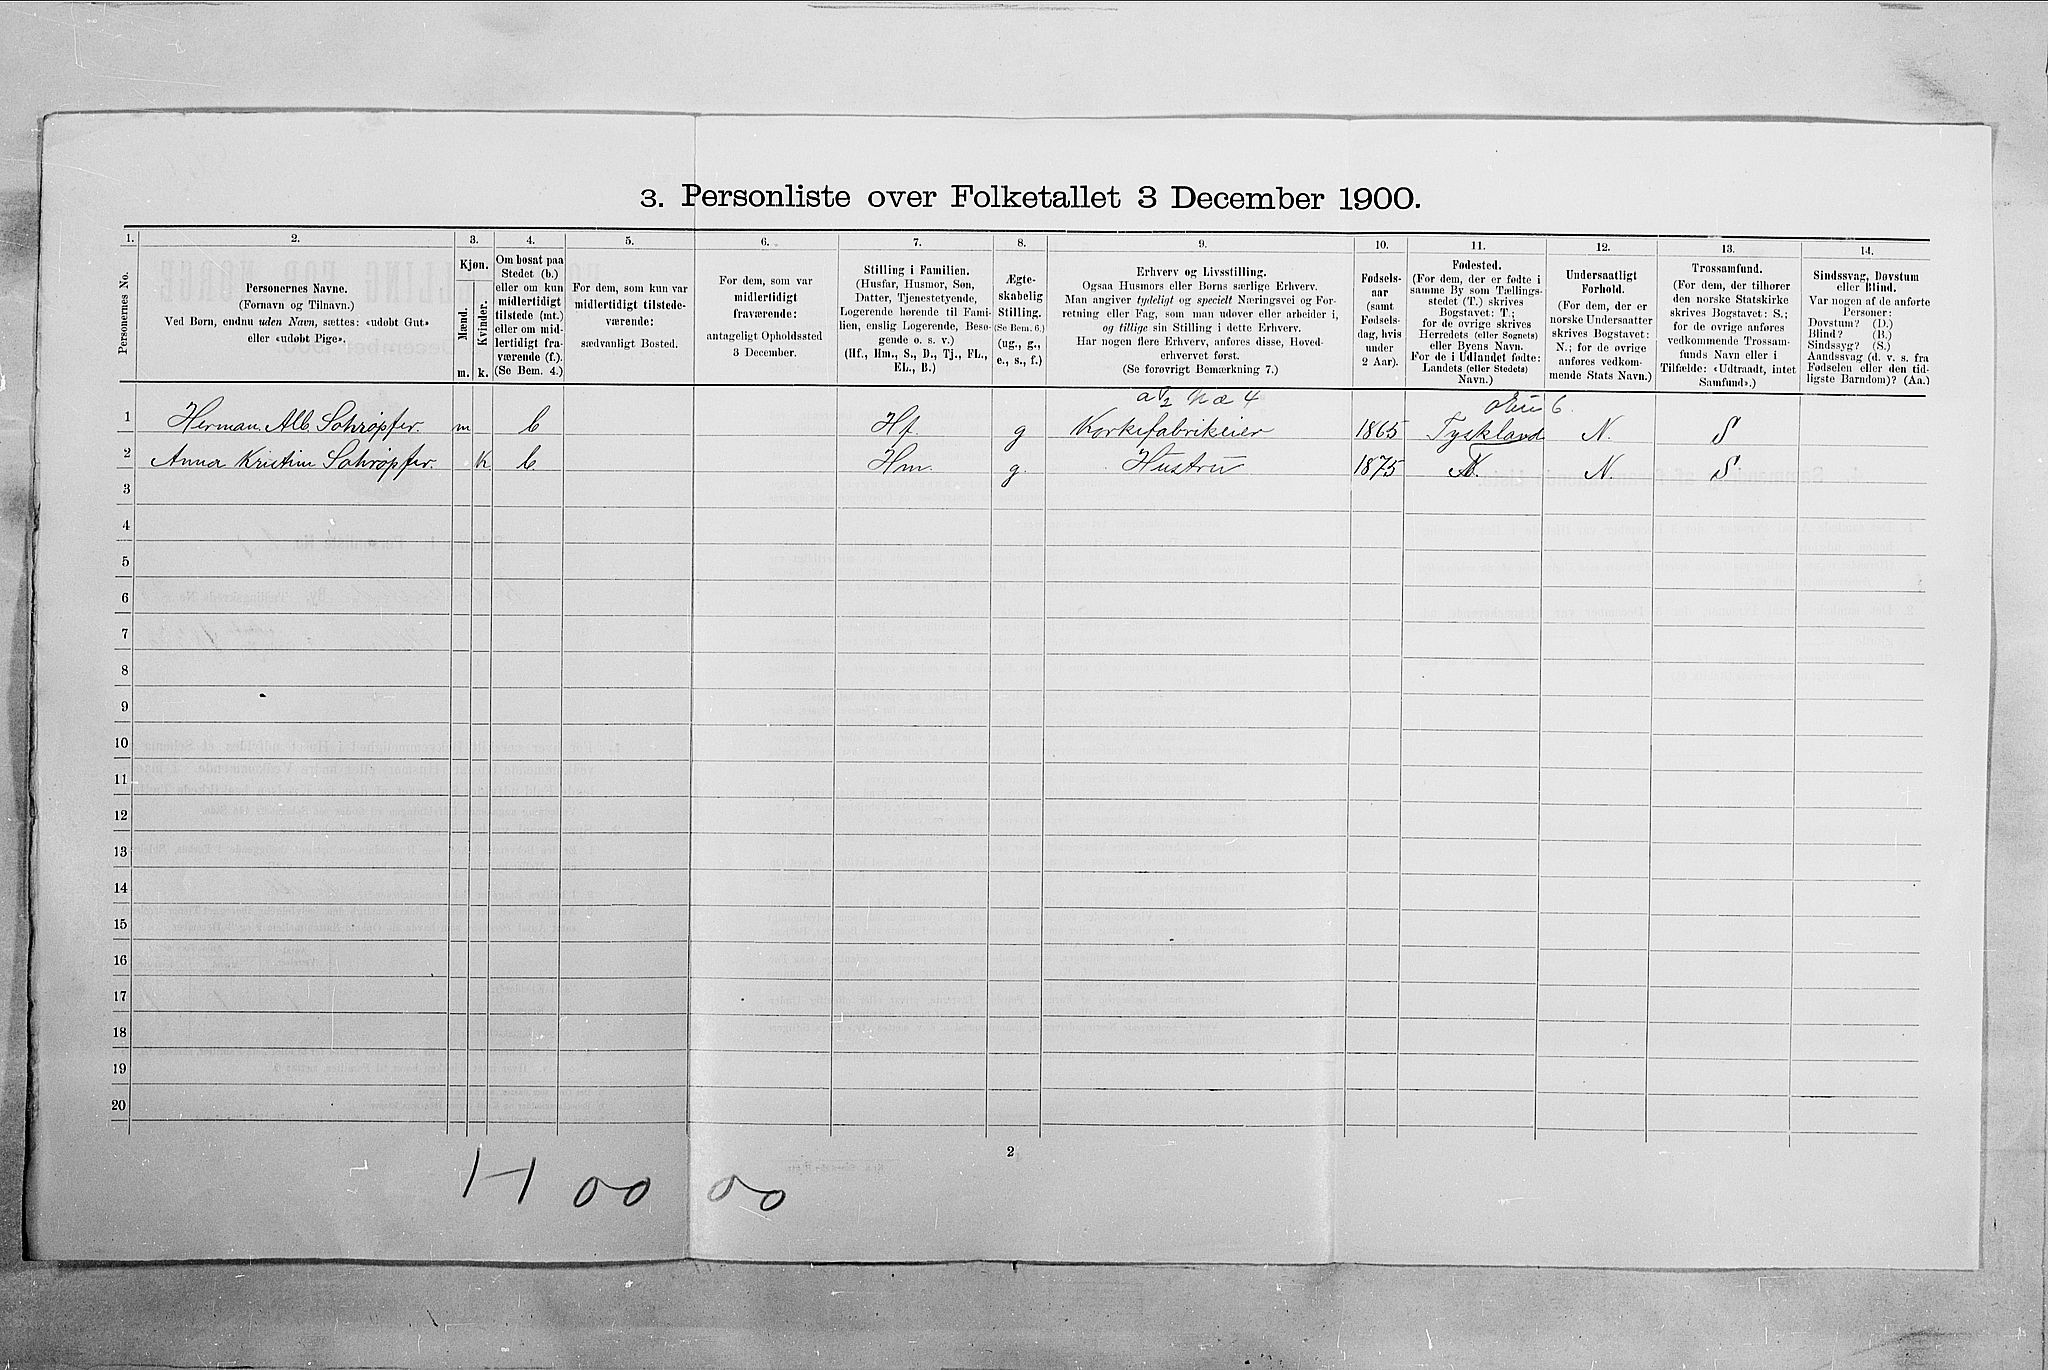 3. Personliste over Folketallet 3 December 1900.
1. 2. 3. 4. 5. 6. 7. 8. 9. 10. 11. 12. 13. 14.
Personernes No.
Personernes Navne.
(Fornavn og Tilnavn.)
Ved Børn, endnu uden Navn, sættes: «udøbt Gut»
eller «udøbt Pige».
Kjøn.
Mænd.
Kvinder.
m. k.
Om bosat paa
Stedet (b.)
eller om kun
midlertidigt
tilstede (mt.)
eller om mid-
lertidigt fra-
værende (f.)
(Se Bem. 4.)
For dem, som kun var
midlertidigt tilstede-
værende:
sædvanligt Bosted.
For dem, som var
midlertidigt
fraværende:
antageligt Opholdssted
3 December.
Stilling i Familien.
(Husfar, Husmor, Søn,
Datter, Tjenestetyende,
Logerende hørende til Fami-
lien, enslig Logerende, Besø-
gende o. s. v.)
(Hf., Hm., S., D., Tj., FL.,
EL., B.)
Ægte-
skabelig
Stilling.
(Se Bem. 6.)
(ug., g.,
e., s., f.)
Erhverv og Livsstilling.
Ogsaa Husmors eller Børns særlige Erhverv.
Man angiver tydeligt og specielt Næringsvei og For-
retning eller Fag, som man udøver eller arbeider i,
og tillige sin Stilling i dette Erhverv.
Har nogen flere Erhverv, anføres disse, Hoved-
erhvervet først.
(Se forøvrigt Bemærkning 7.)
Fødsels-
aar
(samt
Fødsels-
dag, hvis
under
2 Aar).
Fødested.
(For dem, der er fødte i
samme By som Tællings-
stedet (T.) skrives
Bogstavet: T.;
for de øvrige skrives
Herredets (eller Sognets)
eller Byens Navn.
For de i Udlandet fødte:
Landets (eller Stedets)
Navn.)
Undersaatligt
Forhold.
(For dem, der er
norske Undersaatter
skrives Bogstavet:
N.; for de øvrige
anføres vedkom-
mende Stats Navn.)
Trossamfund.
(For dem, der tilhører
den norske Statskirke
skrives Bogstavet: S.;
for de øvrige anføres
vedkommende Trossam-
funds Navn eller i
Tilfælde: «Udtraadt, intet
Samfund».)
Sindssvag, Døvstum
eller Blind.
Var nogen af de anførte
Personer:
Døvstum? (D.)
Blind? (B.)
Sindssyg? (S.)
Aandssvag (d. v. s. fra
Fødselen eller den tid-
ligste Barndom)? (Aa.)
1 Herman Alb Schröpfer. m b Hf g Korkefabrikeier 1865 Tyskland N. S
2 Anna Kristine Schröpfer. k b Hm. g. Hustru 1875 N. S
3
4
5
6
7
8
9
10
11
12
13
14
15
16
17
18
19
20
2
H 00 00